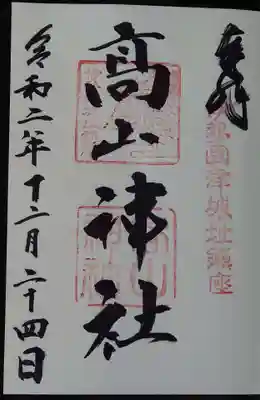 奉拝
伊勢国津城址鎮座
髙山神社
令和二年十二月二十四日